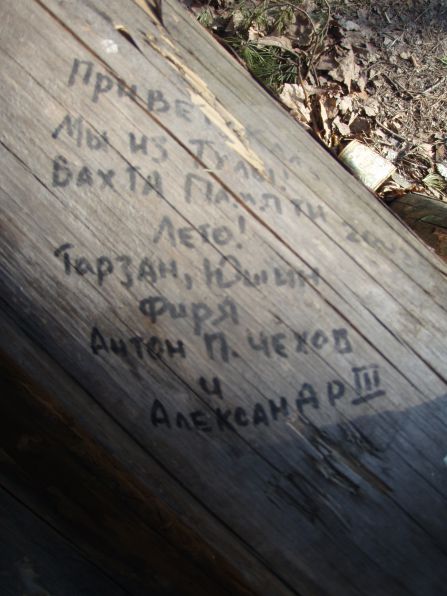 Привет
Мы из Тулы!
Вахта Памяти
Лето!
Тарзан, Юшин
Фиря
Антон П. Чехов
и
Александр III